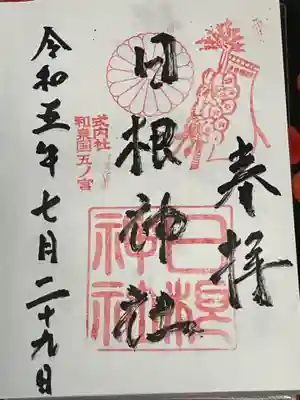 奉拝
日根神社
式内社
和泉国五ノ宮
日根
神社
令和五年七月二十九日